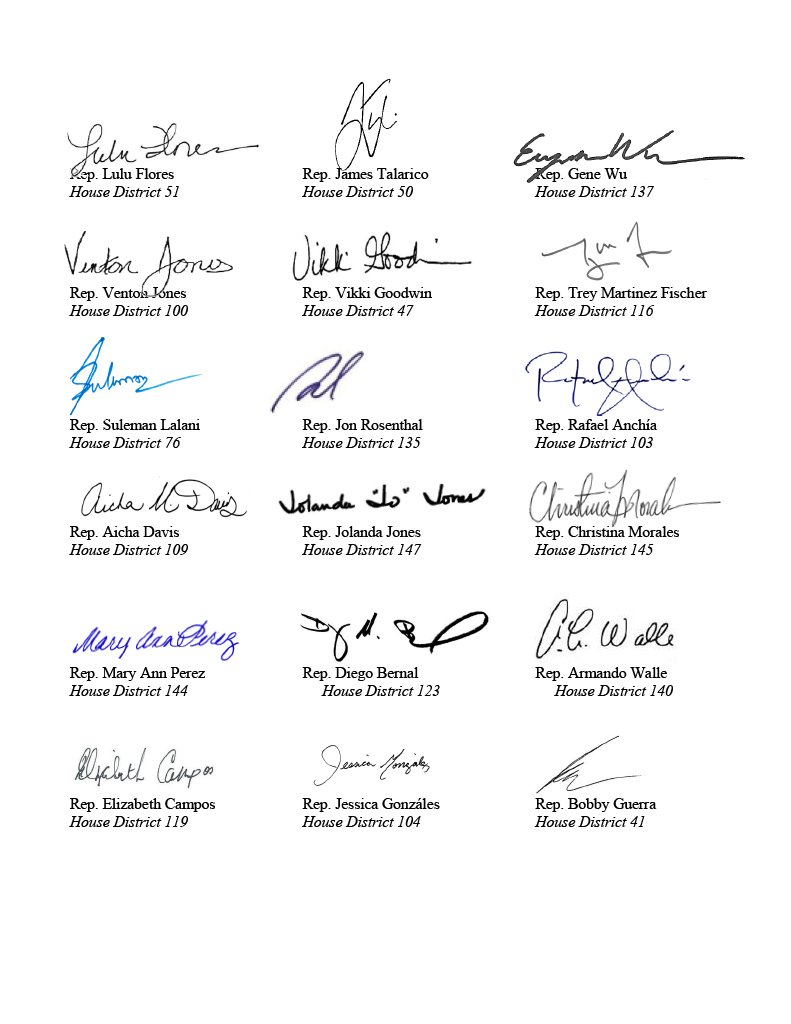 Lulu Flores
Rep. Lulu Flores
House District 51
Rep. James Talarico
House District 50
Eugene Wu
Rep. Gene Wu
House District 137
Venton Jones
Rep. Venton Jones
House District 100
Vikki Goodwin
Rep. Vikki Goodwin
House District 47
Rep. Trey Martinez Fischer
House District 116
Rep. Suleman Lalani
House District 76
Rep. Jon Rosenthal
House District 135
Rafael Anchía
Rep. Rafael Anchía
House District 103
Aicha M Davis
Rep. Aicha Davis
House District 109
Jolanda "Jo" Jones
Rep. Jolanda Jones
House District 147
Christina Morales
Rep. Christina Morales
House District 145
Mary Ann Perez
Rep. Mary Ann Perez
House District 144
Rep. Diego Bernal
House District 123
A.C. Walle
Rep. Armando Walle
House District 140
Elizabeth Campos
Rep. Elizabeth Campos
House District 119
Jessica González
Rep. Jessica Gonzáles
House District 104
Rep. Bobby Guerra
House District 41